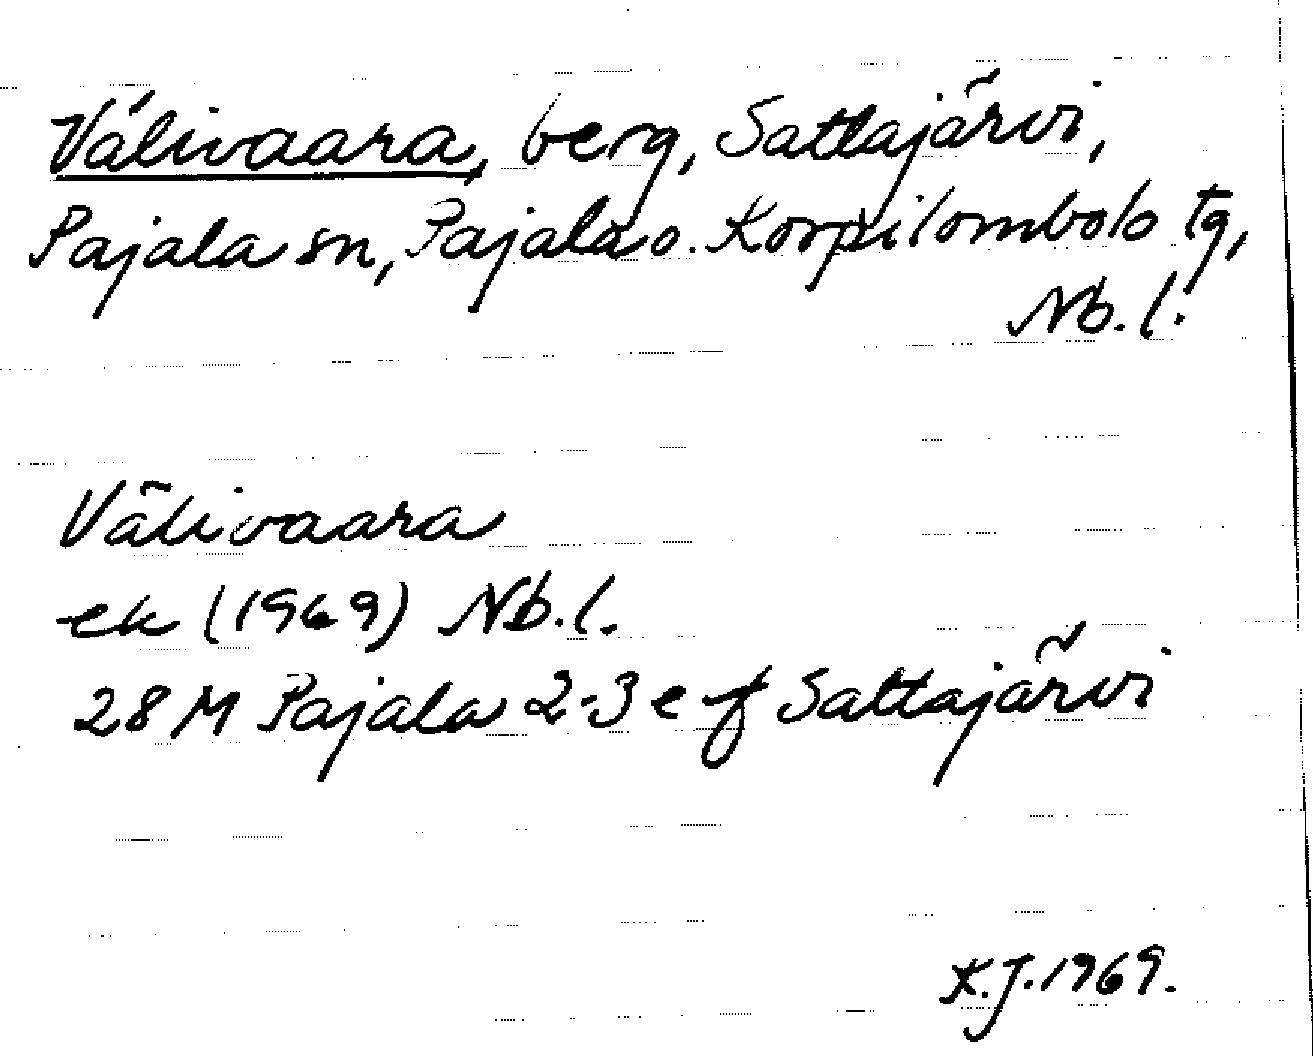 Välivaara, berg, Sattajärvi,
Pajala sn, Pajala o. Korpilombolo tg,
Nb. l.
Välivaara
ek (1969) Nb. l.
28 M Pajala 2-3 e f Sattajärvi
K.J. 1969.